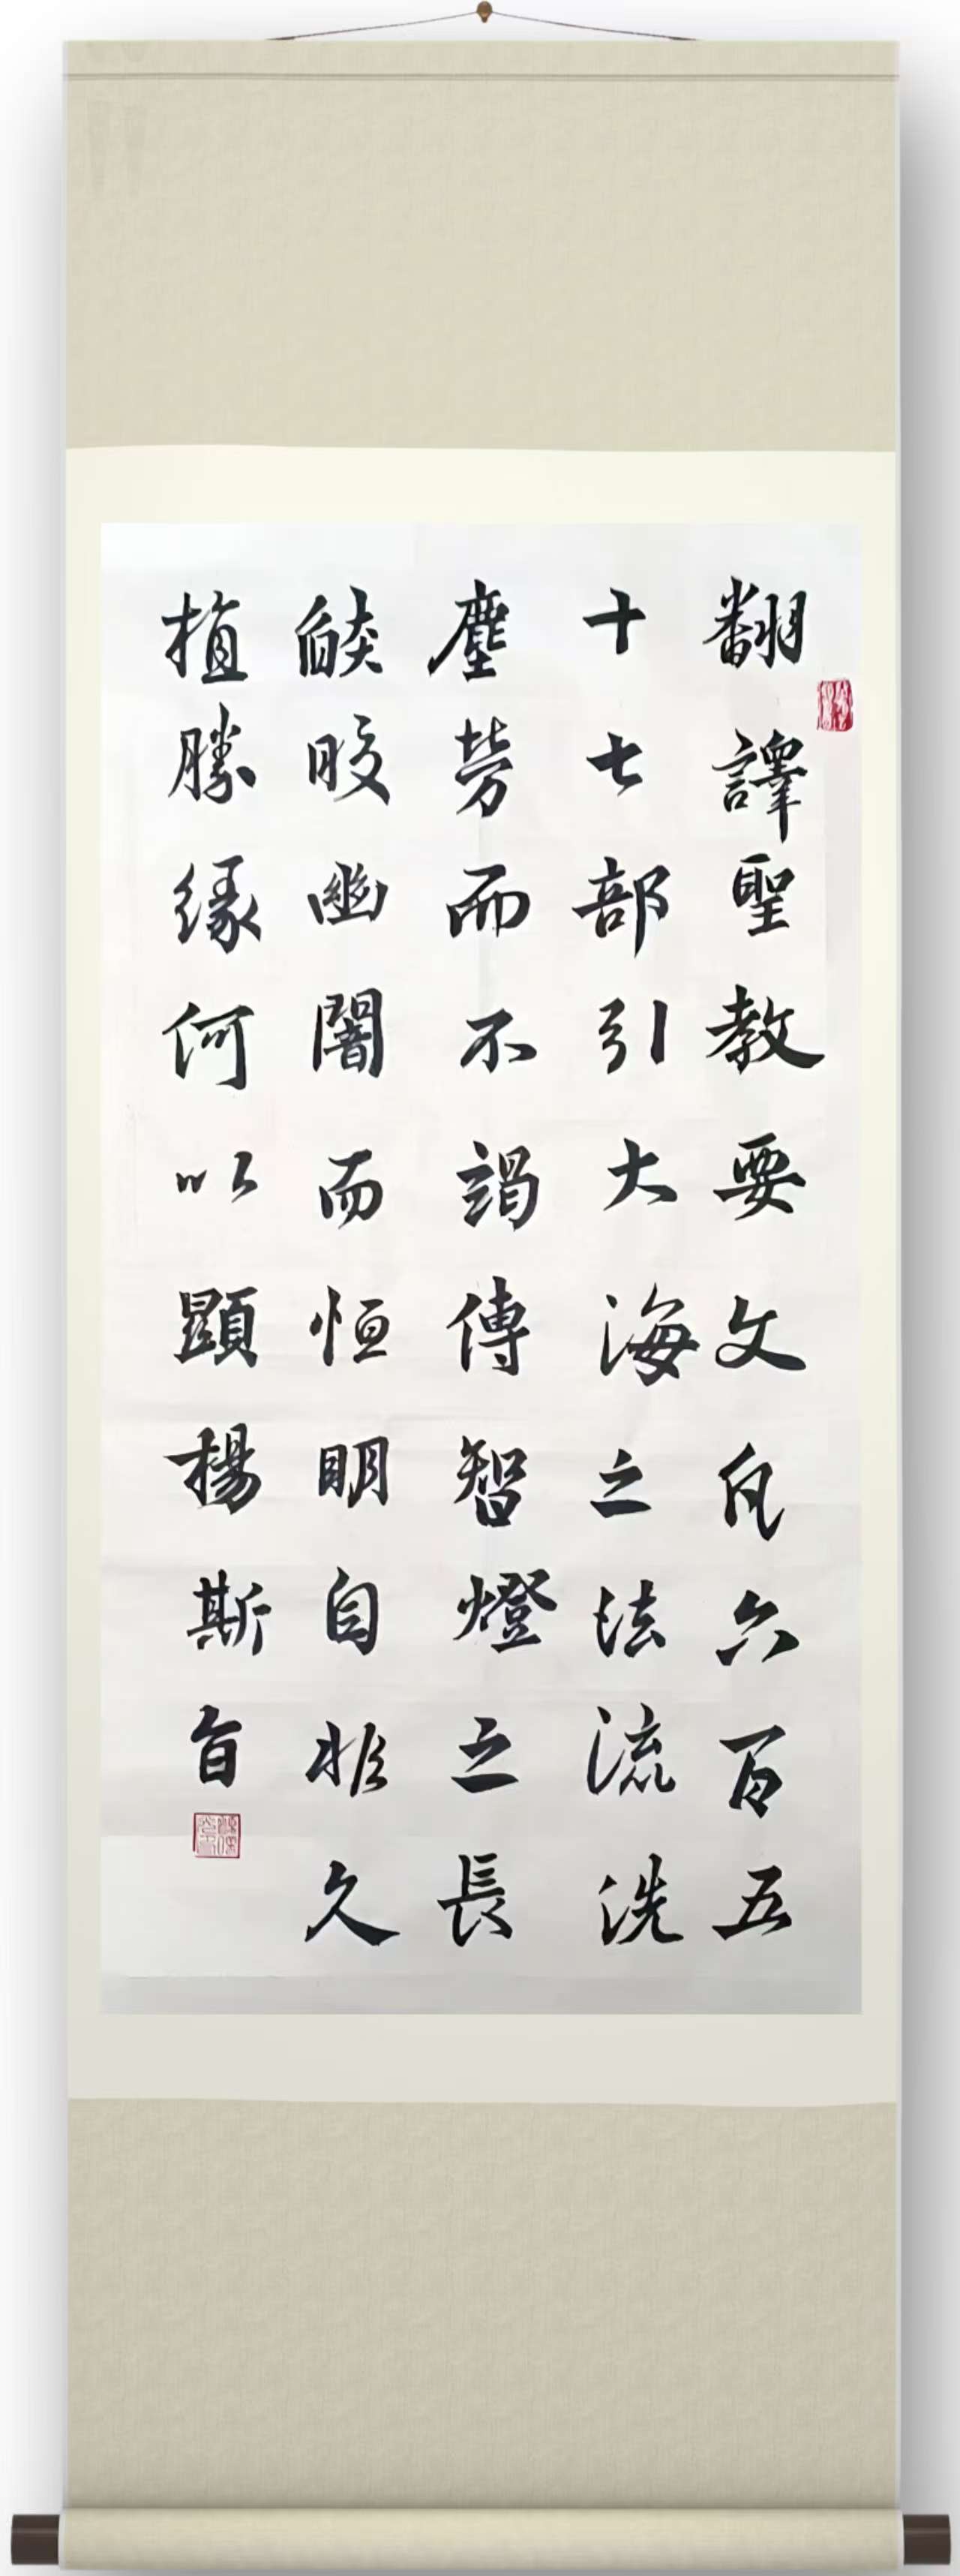 翻譯聖教要文凡六百五
十七部引大海之法流洗
塵勞而不竭傳智燈之長
燄皎幽闇而恒明自非久
植勝緣何以顯揚斯旨